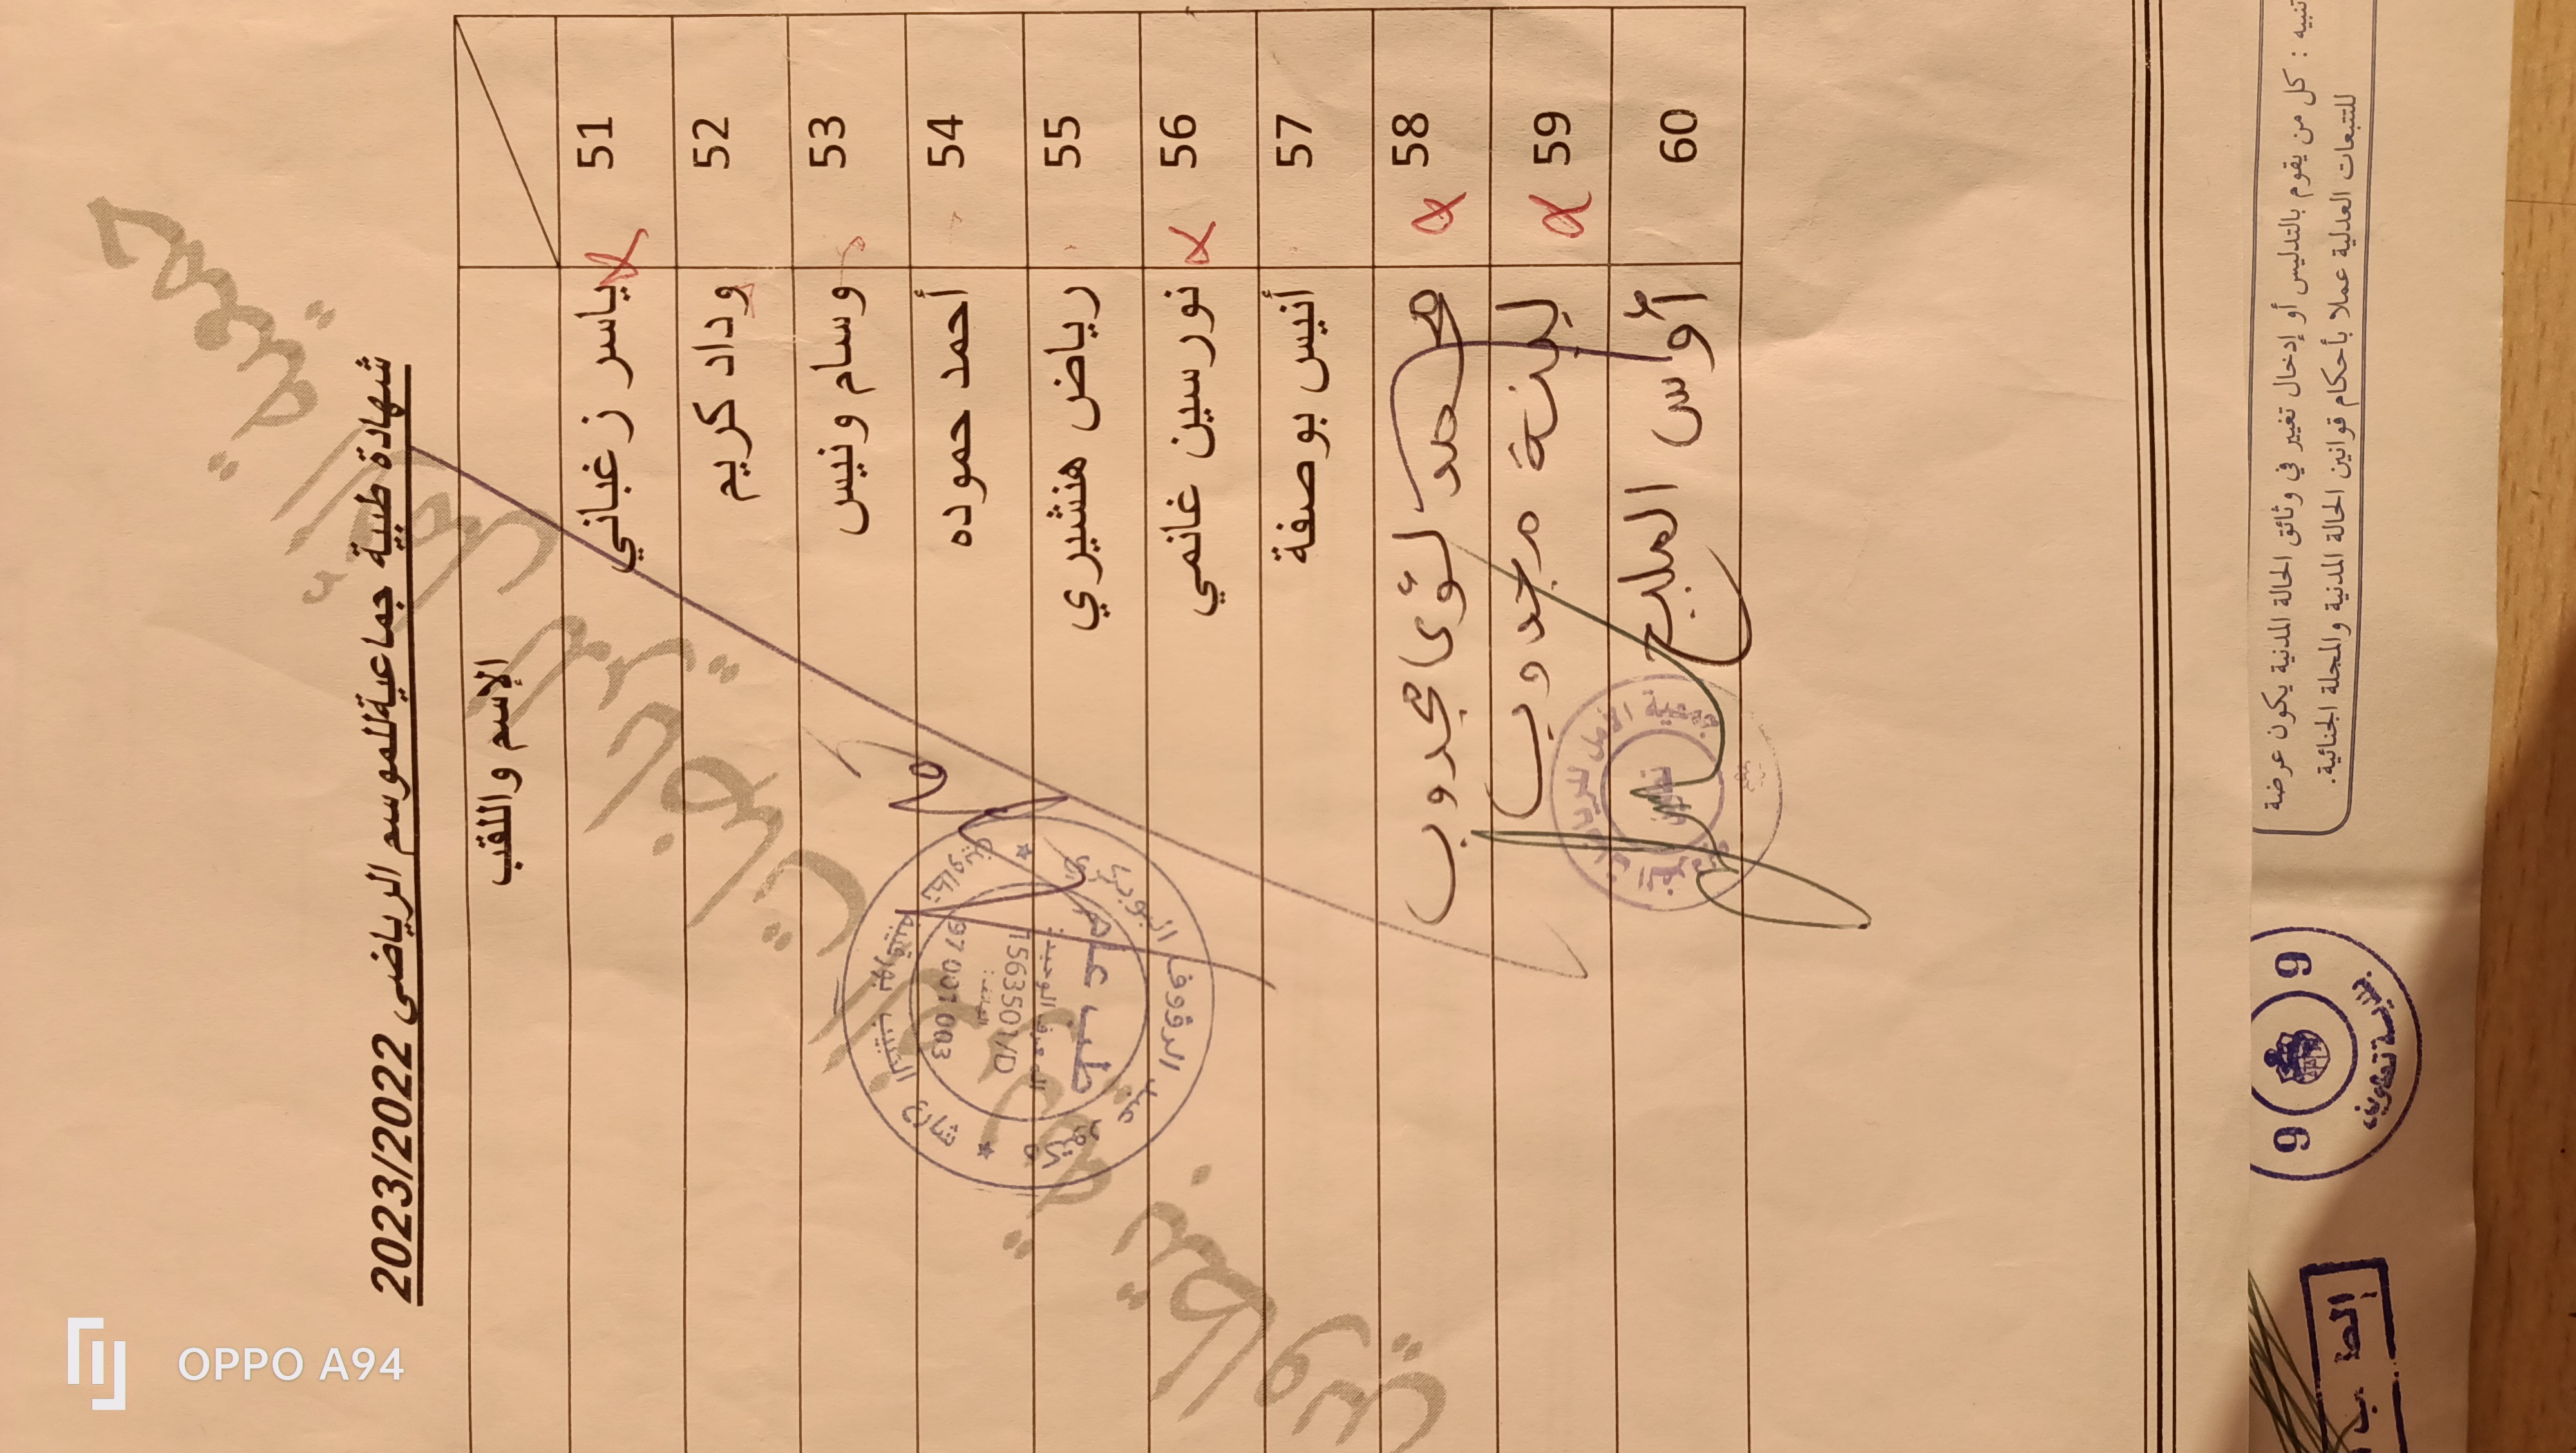 شهادة طبية جماعية للموسم الرياضي 2023/2022
الإسم واللقب
51 ياسر زغباني
52 وداد كريم
53 وسام ونيس
54 أحمد حموده
55 رياض هنشيري
56 نورسين غانمي
57 أنيس بوصفة
58 محمد لؤي مجدوب
59 لينة مجدوب
60 أوس
جمعية
بتطاوين
عبد الرؤوف البوجديدي
طبيب عام
1563501/D
97 007 003
تطاوين
تنبيه : كل من يقوم بالتدليس أو إدخال تغيير في وثائق الحالة المدنية يكون عرضة
للتتبعات العدلية عملا بأحكام قوانين الحالة المدنية والمجلة الجنائية.
9 9
تطاوين
OPPO A94